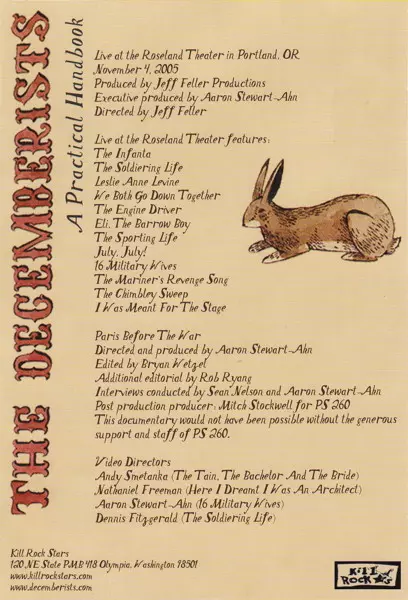 THE DECEMBERISTS
A Practical Handbook
Live at the Roseland Theater in Portland, OR
November 4, 2005
Produced by Jeff Feller Productions
Executive produced by Aaron Stewart-Ahn
Directed by Jeff Feller
Live at the Roseland Theater features:
The Infanta
The Soldiering Life
Leslie Anne Levine
We Both Go Down Together
The Engine Driver
Eli, The Barrow Boy
The Sporting Life
July, July!
16 Military Wives
The Mariner's Revenge Song
The Chimbley Sweep
I Was Meant For The Stage
Paris Before The War
Directed and produced by Aaron Stewart-Ahn
Edited by Bryan Wetzel
Additional editorial by Rob Ryang
Interviews conducted by Sean Nelson and Aaron Stewart-Ahn
Post production producer: Mitch Stockwell for PS 260
This documentary would not have been possible without the generous
support and staff of PS 260.
Video Directors
Andy Smetanka (The Tain, The Bachelor And The Bride)
Nathaniel Freeman (Here I Dreamt I Was An Architect)
Aaron Stewart-Ahn (16 Military Wives)
Dennis Fitzgerald (The Soldiering Life)
Kill Rock Stars
120 NE State PMB 418 Olympia, Washington 98501
www.killrockstars.com
www.decemberists.com
KILL
ROCK